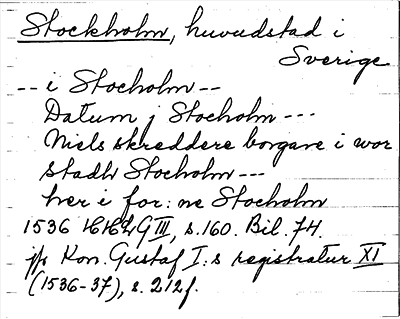 Stockholm, huvudstad i
Sverige
-- i Stocholm --
Datum j Stocholm ---
Niels skreddere borgare i wor
stadh Stocholm ---
her i for: ne Stocholm
1536 HH G III, s. 160. Bil. 74.
jfr Kon. Gustaf I:s registratur XI
(1536-37), s. 212f.